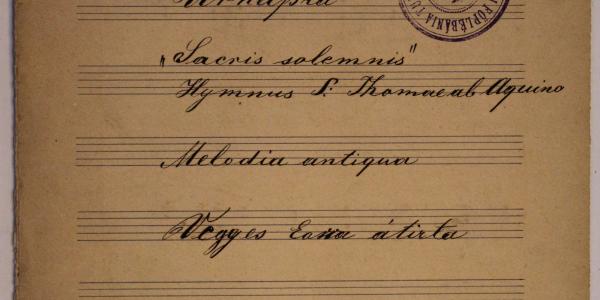 Úrnapra
„Sacris solemnis"
Hymnus S. Thomae ab Aquino
Melodia antiqua
Vegyes átirta
FŐPLÉBÁNIA